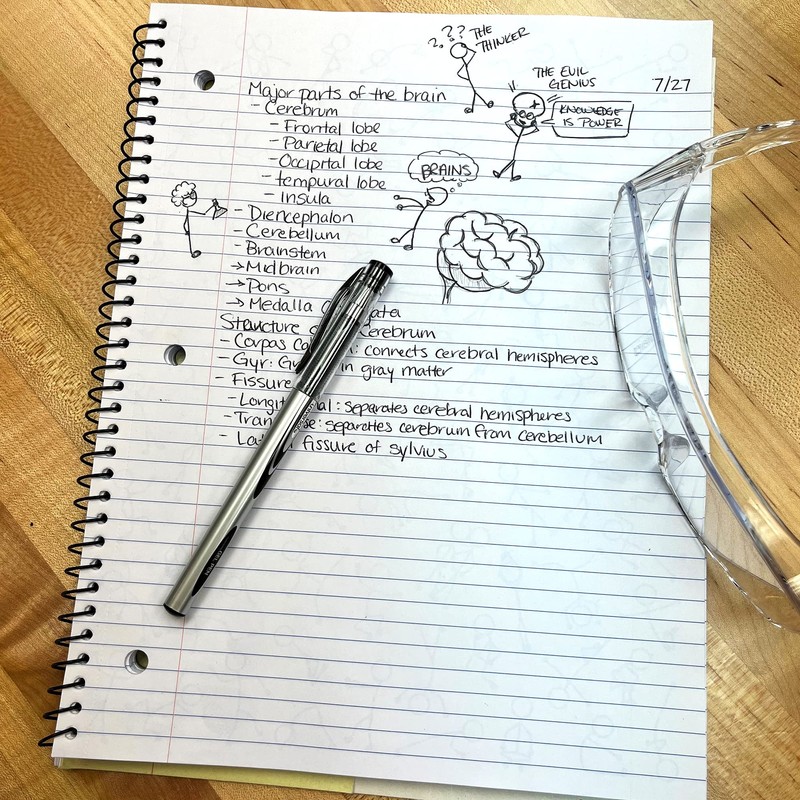 ??? THE
THINKER
THE EVIL
GENIUS
7/27
KNOWLEDGE
IS POWER
Major parts of the brain
- Cerebrum
- Frontal lobe
- Parietal lobe
- Occipital lobe
- tempural lobe
- Insula
BRAINS
- Diencephalon
- Cerebellum
- Brainstem
→ Midbrain
→ Pons
→ Medalla ata
Structure cerebrum
- Corpas : connects cerebral hemispheres
- Gyr: in gray matter
- Fissure
- Longit al: separates cerebral hemispheres
- Tran se: separates cerebrum from cerebellum
- La l fissure of sylvius